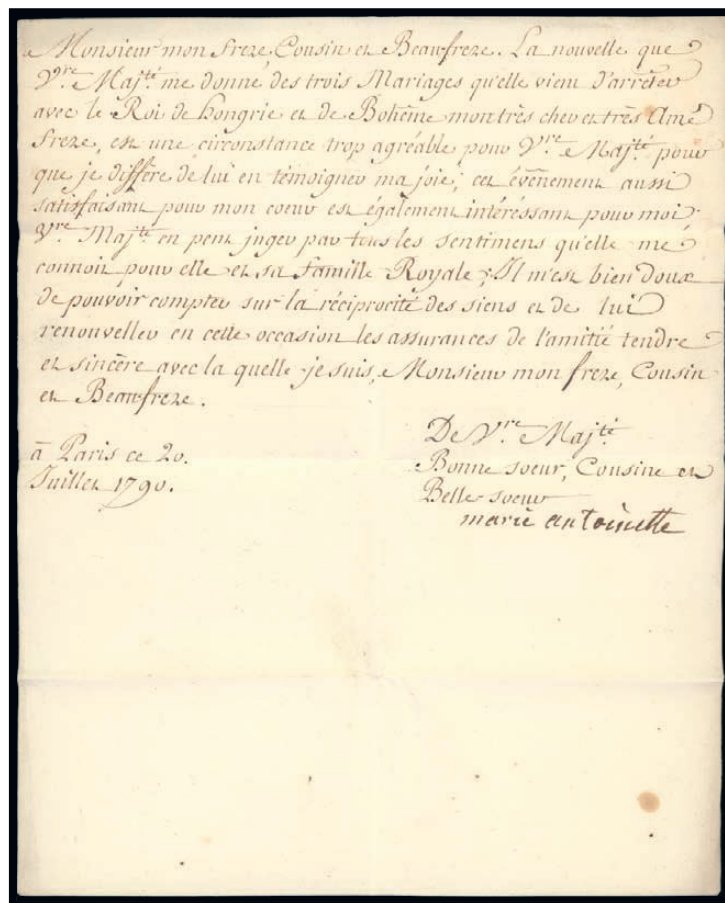 Monsieur mon frere, Cousin et Beaufrere. La nouvelle que
V.re Maj.té me donne des trois Mariages qu'elle vient d'arrêter
avec le Roi de hongrie et de Bohême mon très cher et très Amé
frere, est une circonstance trop agréable pour V.re Maj.té pour
que je diffère de lui en témoigner ma joie; cet évênement aussi
satisfaisant pour mon coeur est également intéréssant pour moi;
V.re Maj.té en peut juger par tous les sentimens qu'elle me
connoit pour elle et sa famille Royale; Il m'est bien doux
de pouvoir compter sur la réciprocité des siens et de lui
renouveller en cette occasion les assurances de l'amitié tendre
et sincère avec la quelle je suis, Monsieur mon frere, Cousin
et Beaufrere.
De V.re Maj.té
à Paris ce 20.
Bonne soeur, Cousine et
Juillet 1790.
Belle soeur
marie antoinette